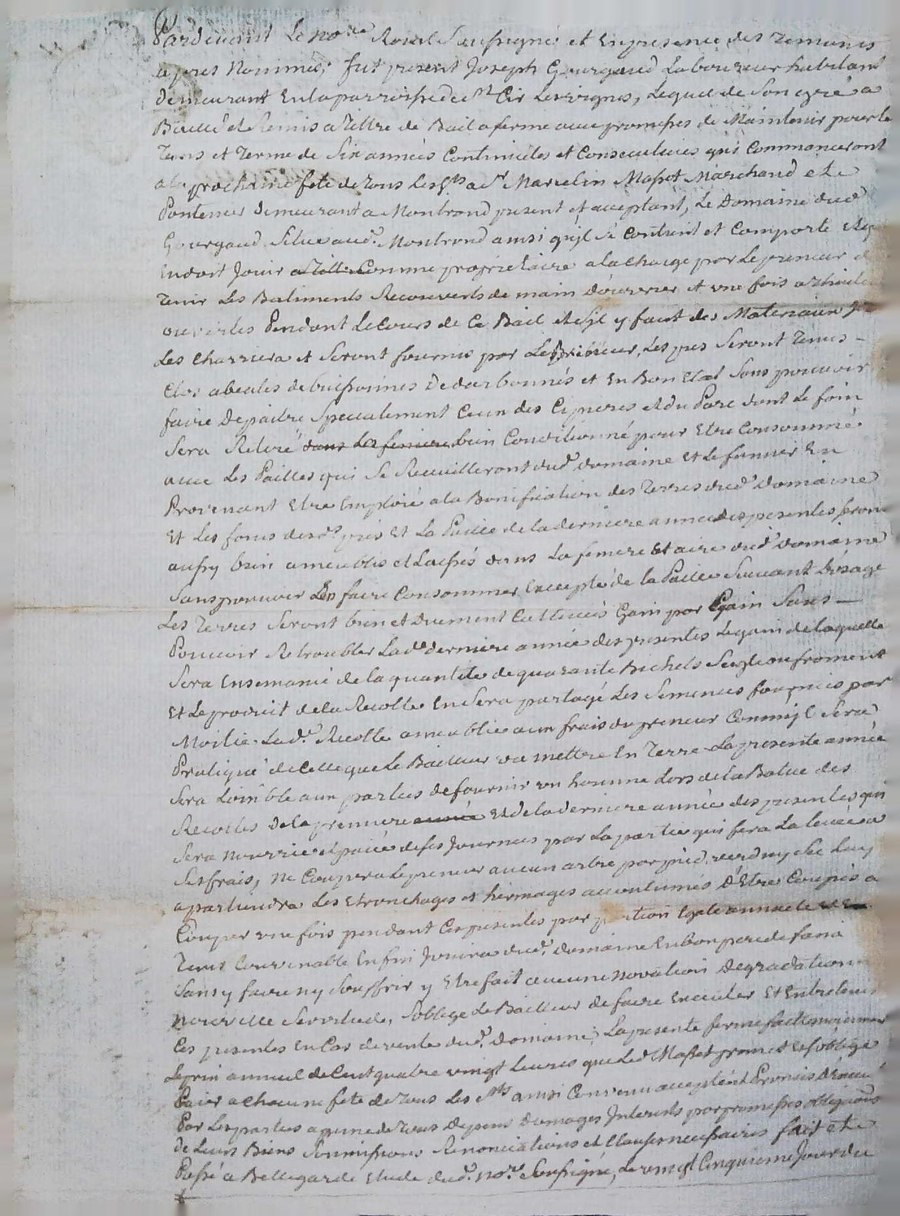 Pardevant Le no.re Roial Soussigné et En presence des Temoins
apres Nommés; fut present Joseph Gourgaud Laboureur habitant
demeurant En la parroisse de S.t Cir Les vignes, Lequel de Son gré a
Baillé et Remis a Tittre de Bail a ferme avec promesses de Maintenir pour le
Tems et Terme de Six années Continuëles et Consecutives qui Commanceront
a la prochaine fete de Tous Les S.ts a S.r Marcelin Masset Marchand et
Pontenier demeurant a Montrond present et acceptant, Le Domaine dud.
Gourgaud Situé aud. Montrond ainsi qu'il Se Contient et Comporte
En doit Jouir Comme propriétaire a la Charge par Le preneur de
Tenir Les Batiments Recouverts de main Douvrier et une fois a thuile
ouvertes Pendant Le Cours de Ce Bail et S'il y faut des Materiaux
Les Charriera et Seront fournis par Le Bailleur, Les pres Seront Tenus
Clos abeales debuissonnes Dedarbonnés et En Bon Etat Sans pouvoir
faire Depaitre Specialement Ceux des Cigneres et du Parc dont Le foin
Sera Retiré bien Conditionné pour Etre Consommé
avec Les Pailles qui Se Recuilleront dud. domaine Et Le fumier En
Provenant Etre Emploié a la Bonification des Terres dud. Domaine
Et Les foins desd. prés Et La Paille de la derniere année des presentes Seront
aussy bien ameublis et Laissés dans La feniere Et aire dud. Domaine
Sans pouvoir En faire Consommer Excepté de la Paille Suivant L'usage
Les Terres Seront bien et Duement Cultivées Gain par Gain Sans
Pouvoir Retroubler Lad. derniere année des presentes Le gain de laquelle
Sera Ensemancé de la quantité de quarante Bichets Seigle ou froment
Et Le produit de la Recolte En Sera partagé Les Semences fournies par
Moitié Lad. Recolte ameublie aux frais du preneur Comm'il Sera
Pratiqué de Celle que Le Bailleur va mettre En Terre La presente année
Sera Loisible aux parties de fournir un homme Lors de la Batue des
Recoltes de la premiere Et de la derniere année des presentes qui
Sera nourrie et paiée de ses Journées par La partie qui fera La levée a
Ses frais, ne Coupera Le preneur aucun arbre par pied, verd ny Sec Luy
apartiendra Les Etronchages et hermages accoutumés D'Etre Coupés a
Couper une fois pendant Ces presentes par portion Egale annuele
Tems Convenable Enfin Jouira dud. domaine En bon pere de famille
Sans y faire ny Souffrir y Etre fait aucune novation Degradation
nouvelle Servitude, S'oblige Le Bailleur de faire Executer Et Entretenir
Ces presentes En Cas de vente dud. Domaine; La presente ferme faitte moiennant
Le prix annuel de Cent quatre vingt Livres que Led. Masset promet Et S'oblige
Paier a Chacune fete de Tous Les S.ts ainsi Convenu accepté et Promis
Par Les parties a peine de Tous Depens Domages Interets par promesses obligations
de Leurs Biens Soumissions Renonciations et Clauses necessaires fait et
Passé a Bellegarde Etude dud. no.re Soussigné, Le vingt Cinquieme Jour du